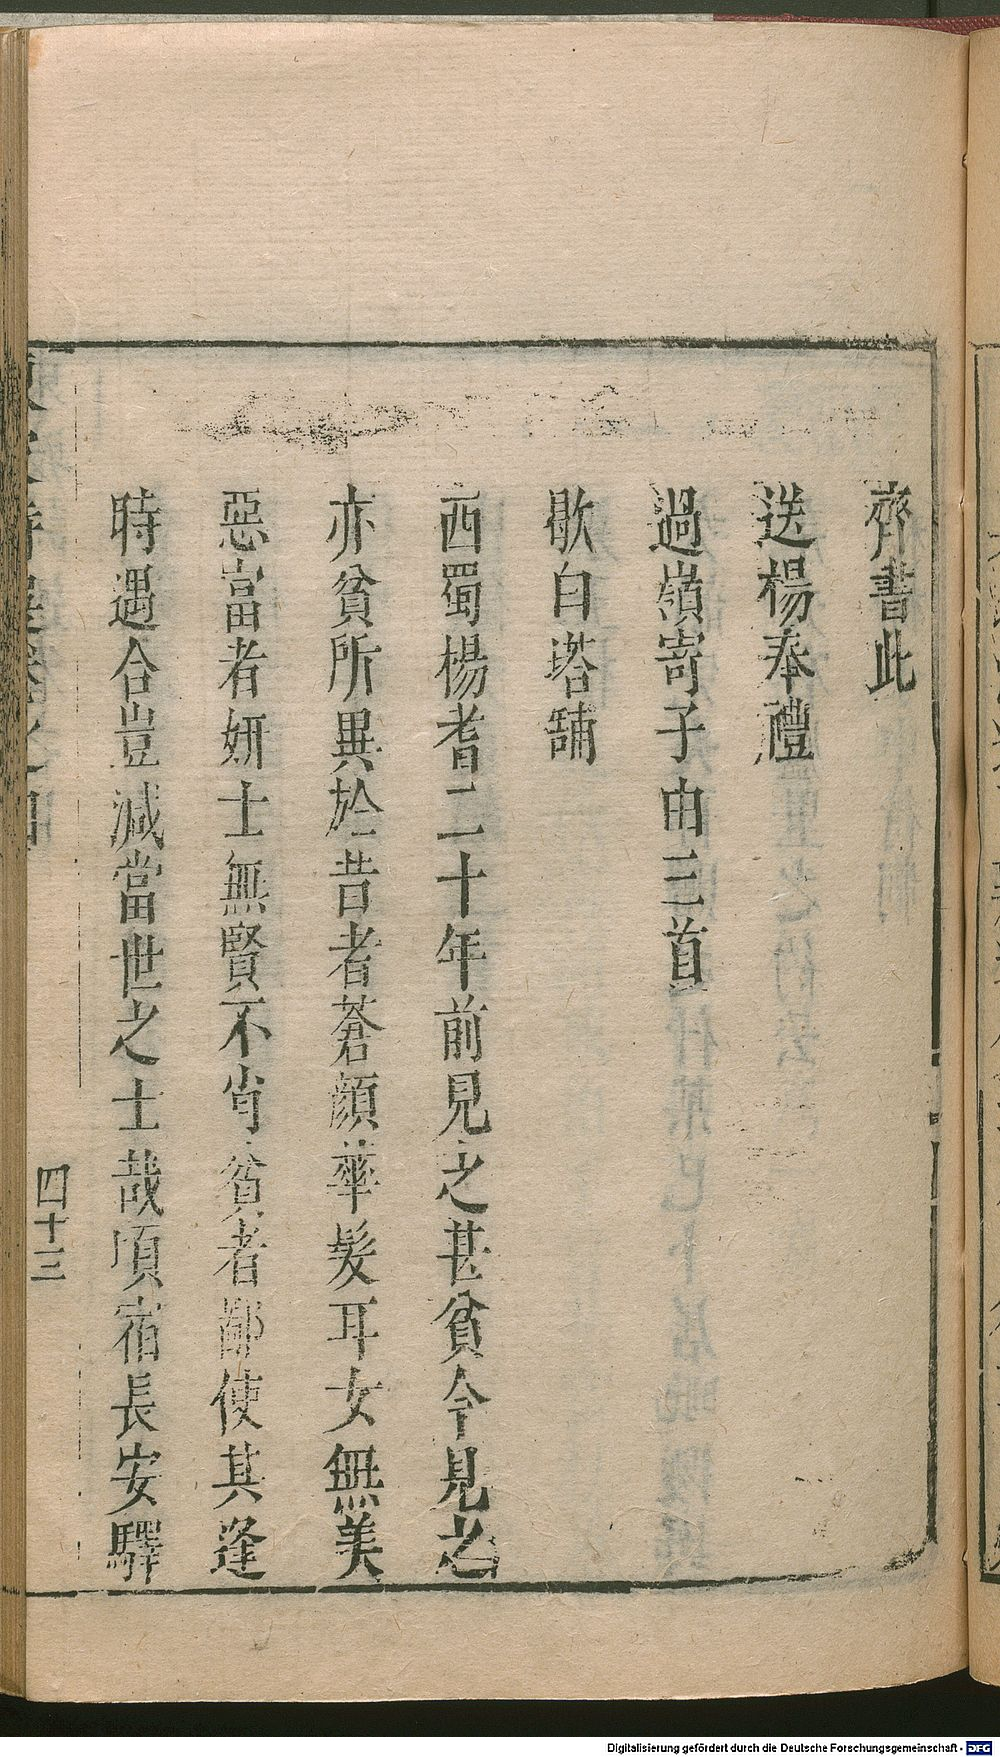 齊書此
送楊奉禮
過嶺寄子由三首
歇白塔舖
西蜀楊耆二十年前見之甚貧今見之
亦貧所異於昔者蒼顔華髮耳女無美
惡富者妍士無賢不肖貧者鄙使其逢
時遇合豈減當世之士哉頃宿長安驛
四十三
Digitalisierung gefördert durch die Deutsche Forschungsgemeinschaft - DFG